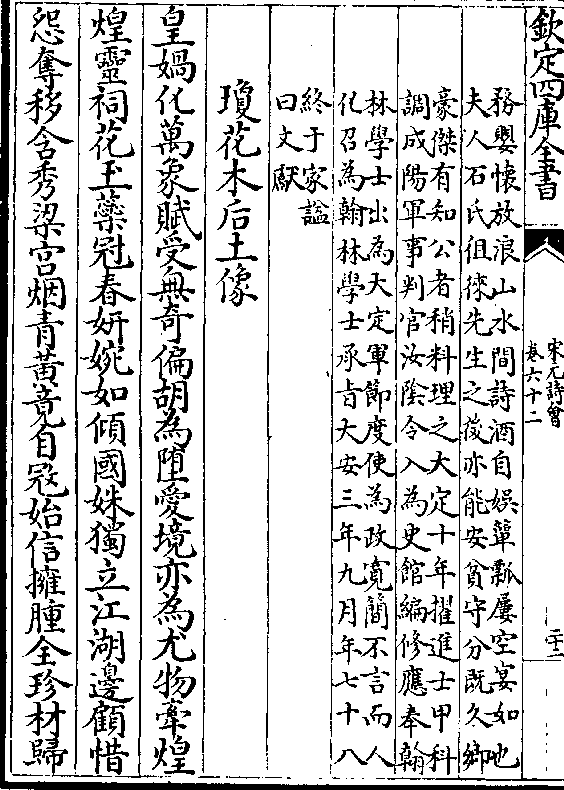 欽定四庫全書
宋元詩會
卷六十二
二十二
務嬰懷放浪山水間詩酒自娛簞瓢屢空宴如也
夫人石氏徂徠先生之後亦能安貧守分既久鄉
豪傑有知公者稍料理之大定十年擢進士甲科
調成陽軍事判官汝陰令入為史館編修應奉翰
林學士出為大定軍節度使為政寬簡不言而人
化召為翰林學士承旨大安三年九月年七十八
終于家諡
曰文獻
瓊花木后土像
皇媧化萬象賦受無奇偏胡為墮愛境亦為尤物牽煌
煌靈祠花玉蘂冠春妍婉如傾國姝獨立江湖邊顧惜
怨奪移含秀梁宮烟青黃竟自冦始信擁腫全珍材歸